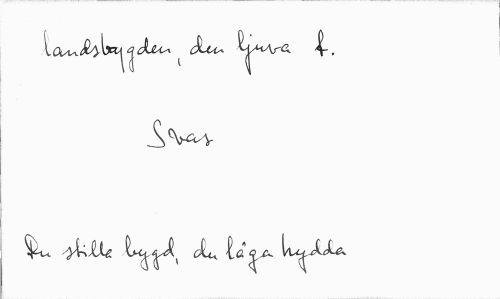 landsbygden, den ljuva f.
Svar
Du stilla bygd, du låga hydda